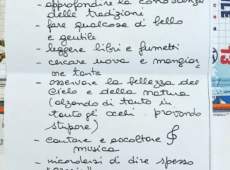 - approfondire la conoscenza
delle tradizioni
- fare qualcosa di bello
e gentile
- leggere libri e fumetti
- cercare uova e mangiar
ne tante
- osservare la bellezza del
cielo e della natura
(alzando di tanto in
tanto gli occhi. provando
stupore)
- cantare e ascoltare
musica
- ricordarsi di dire spesso